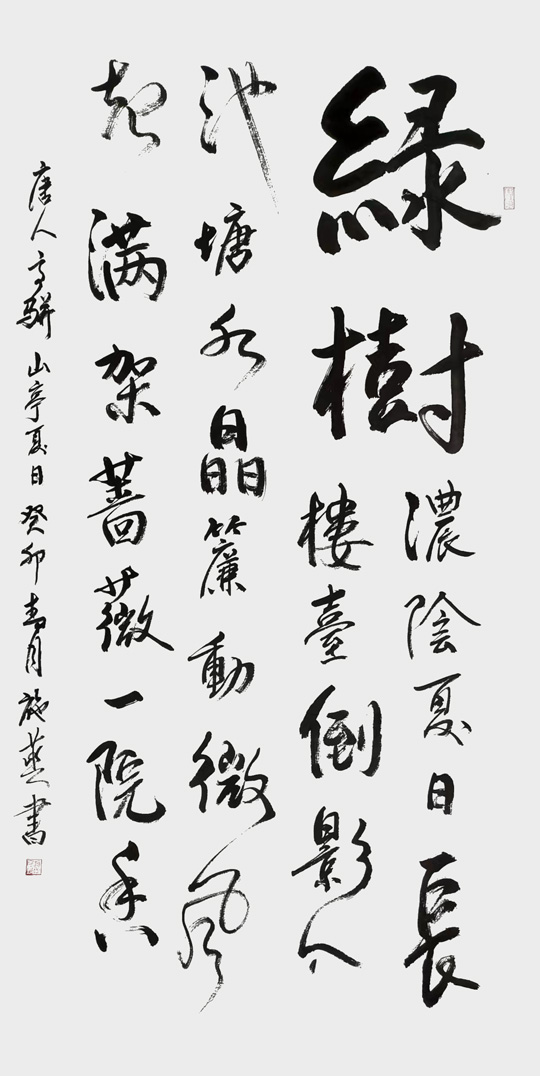 綠樹
濃陰夏日長
樓臺倒影入
池塘水晶簾動微風
起满架薔薇一院香
唐人高駢山亭夏日癸卯春月施燕書